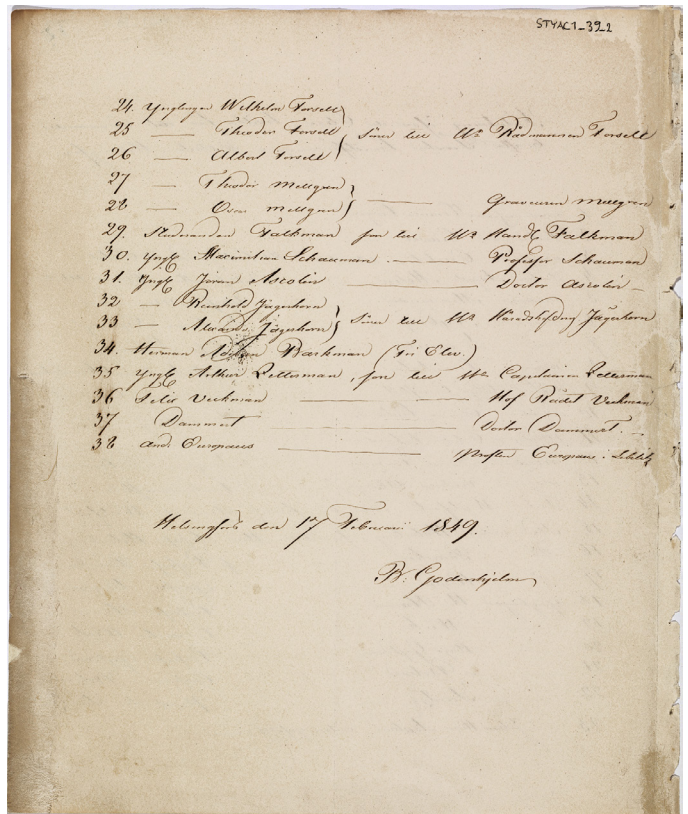 STYAC1_39_2
24. Ynglingen Wilhelm Forsell
25 — Theodor Forsell } Söner till Hr Rådmannen Forsell
26 — Albert Forsell
27 — Theodor Mellgren
28 — Oscar Mellgren } — Graveuren Mellgren
29. Studeranden Falkman, son till Hr Handl Falkman
30. Yngl Maximilian Schauman — Professor Schauman
31. Yngl Jonan Ascolin — Doctor Ascolin
32 — Reinhold Jägerhorn
33 — Alexander Jägerhorn } Söner till Hr Häradshöfding Jägerhorn
34. Herman Adrian Barkman (Fri Elev.)
35 Yngl Arthur Zetterman, son till Hr Capitainen Zetterman
36 Felix Veckman — Hof Rådet Veckman
37 Dammert — Doctor Dammert.
38 And. Europaeus — Prosten Europaeus i
Helsingfors den 17 Februarii 1849.
B: Godenhjelm